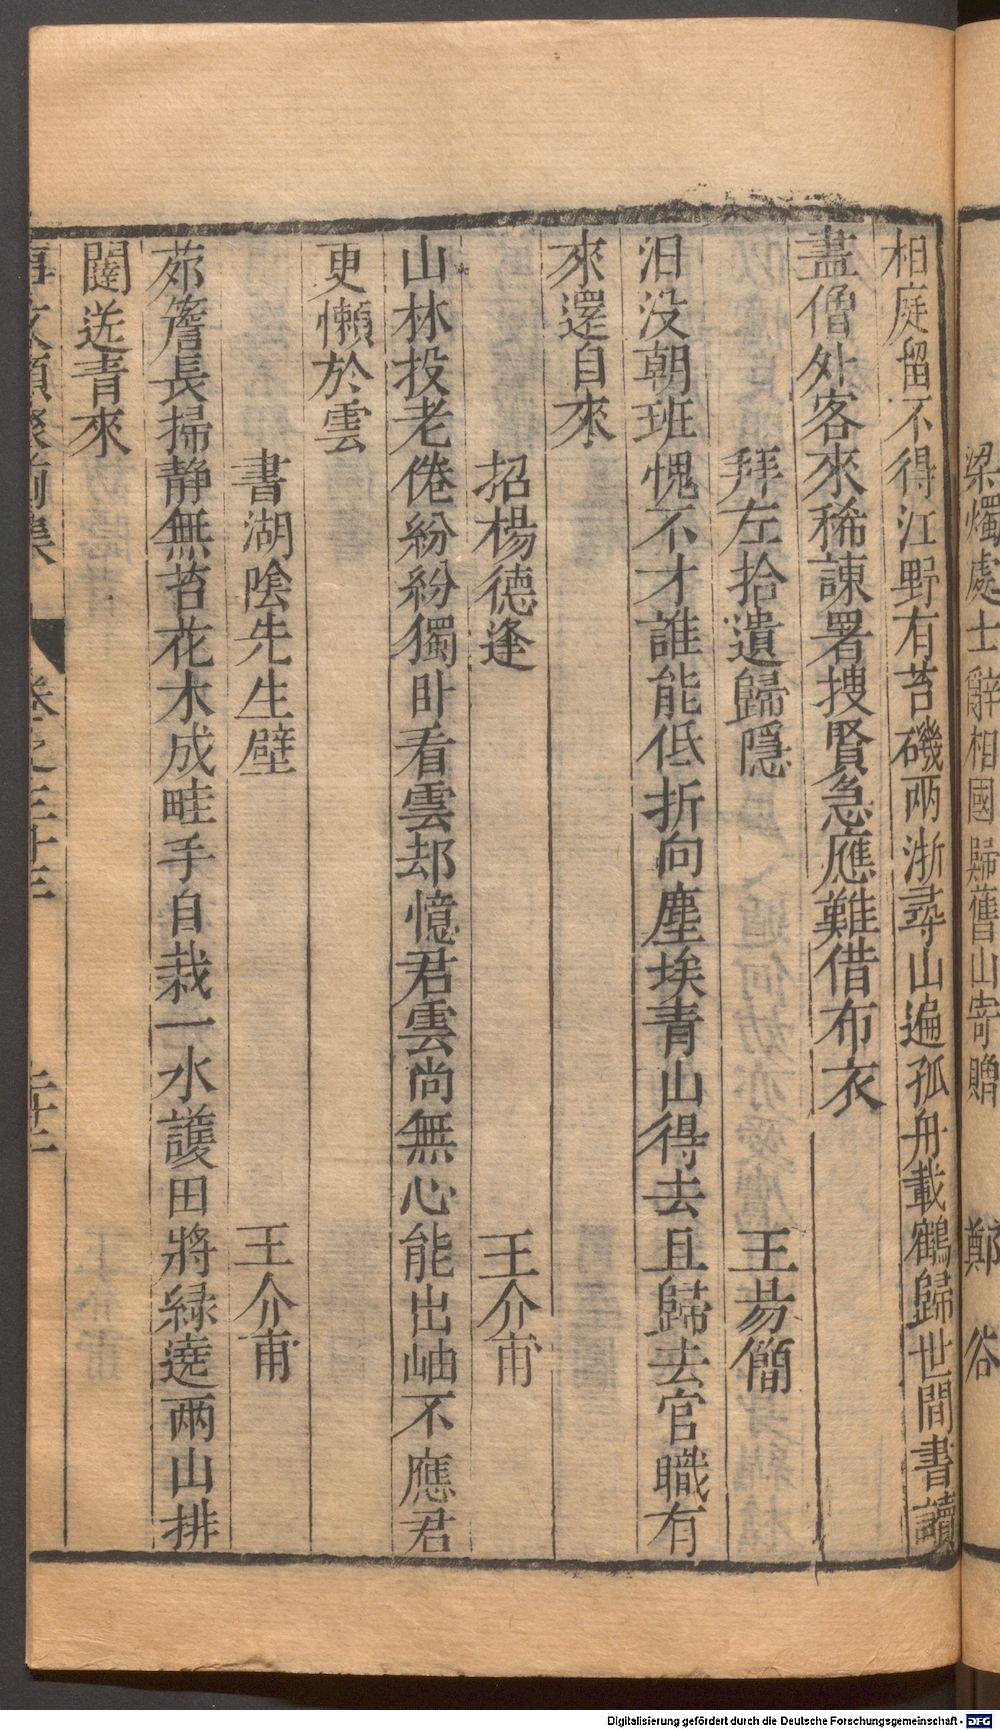 梁燭處士辭相國歸舊山寄贈 鄭谷
相庭留不得江野有苔磯兩浙尋山遍孤舟載鶴歸世間書讀
盡僧外客來稀諫署搜賢急應難借布衣
拜左拾遺歸隱 王昜簡
汨没朝班愧不才誰能低折向塵埃青山得去且歸去官職有
來還自來
招楊德逢 王介甫
山林投老倦紛紛獨臥看雲却憶君雲尚無心能出岫不應君
更懶於雲
書湖陰先生壁 王介甫
茆簷長掃静無苔花木成畦手自栽一水護田將緑遶两山排
闥送青來
事文類聚前集 卷之三十三
Digitalisierung gefördert durch die Deutsche Forschungsgemeinschaft - DFG